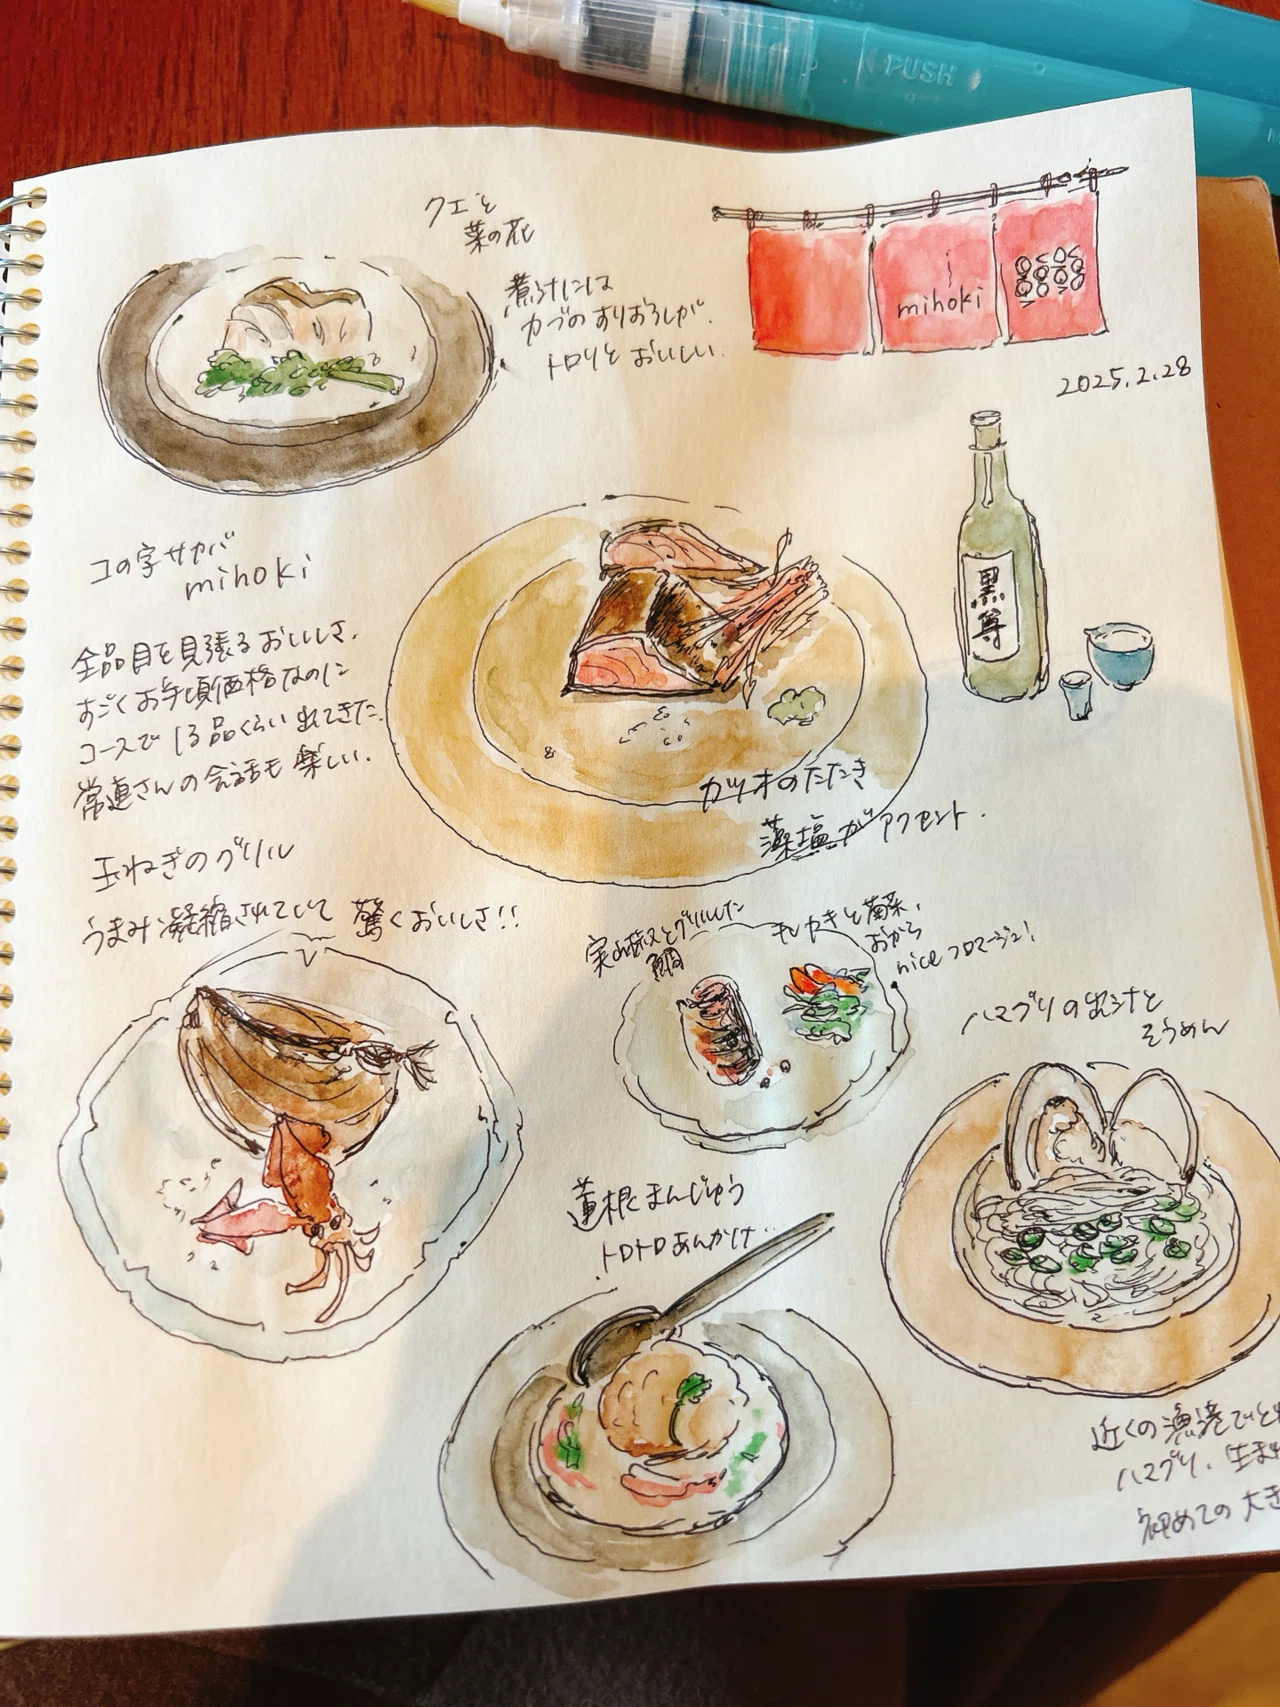 PUSH
クエと
菜の花
煮汁には
カブのすりおろしが、
トロリとおいしい。
mihoki
2025.2.28
黒尊
コの字サカバ
mihoki
全品目を見張るおいしさ。
すごくお手頃価格なのに
コースで13品くらい出てきた。
常連さんの会話も楽しい。
カツオのたたき
藻塩がアクセント。
玉ねぎのグリル
うまみ凝縮されてして驚くおいしさ!!
実山椒とグリルした
鯛
と菊菜、
おから
niceフロマージュ!
ハマグリの出汁と
そうめん
蓮根まんじゅう
トロトロあんかけ
近くの漁港でとれ
ハマグリ、生まれ
初めての大き